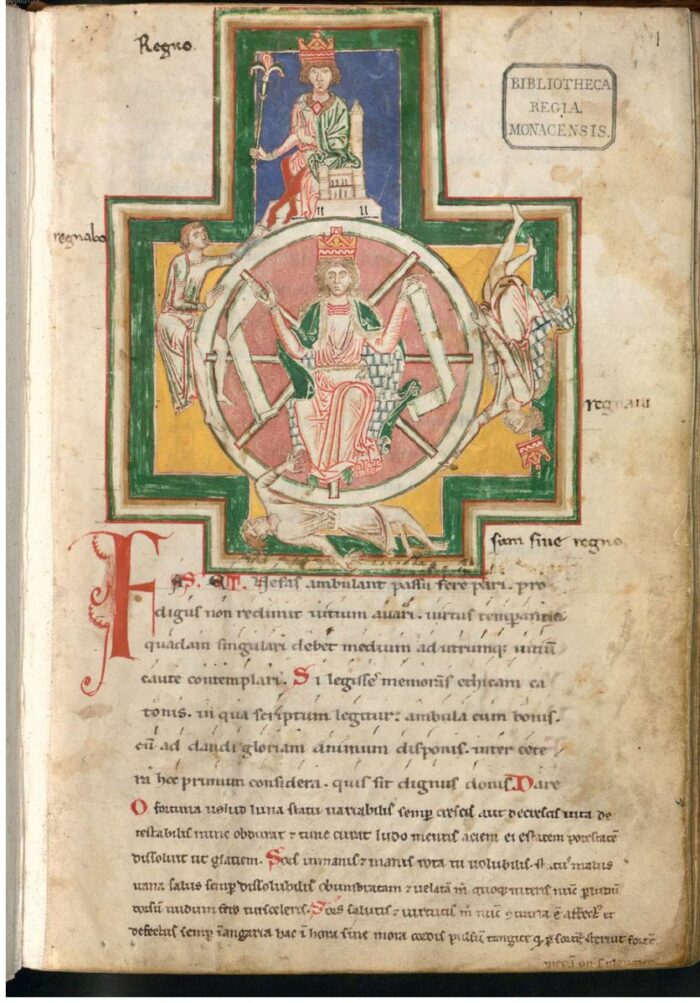 Regno
BIBLIOTHECA
REGIA
MONACENSIS.
regnabo
regnaui
sum sine regno
FAS. ET. Nefas ambulant passu fere pari. pro
digus non redimit uitium auari. uirtus temperantie
quadam singulari debet medium ad utrumq; uitiū
caute contemplari. Si legisse memoras ethicam ca
tonis. in qua scriptum legitur: ambula cum bonis.
cū ad dandi gloriam animum disponis. inter cete
ra hoc primum considera. quis sit dignus donis. Dare
O fortuna uelud luna statu uariabilis semp crescis aut decrescis uita de
testabilis nunc obdurat ⁊ tunc curat ludo mentis aciem potestatē
dissoluit ut glatiem. Sors inmanis ⁊ inanis rota tu uolubilis. status malus
uana salus semp dissolubilis obumbratam ⁊ uelatam m̄ quoq; niteris nūc p ludum
dorsū nudum fero tui sceleris. Sors salutis ⁊ uirtutis m̄ nūc ē et
defectus semp ī angaria hac ī hora sine mora cordis pulsū tangite q̄ p sortē sternit fortē